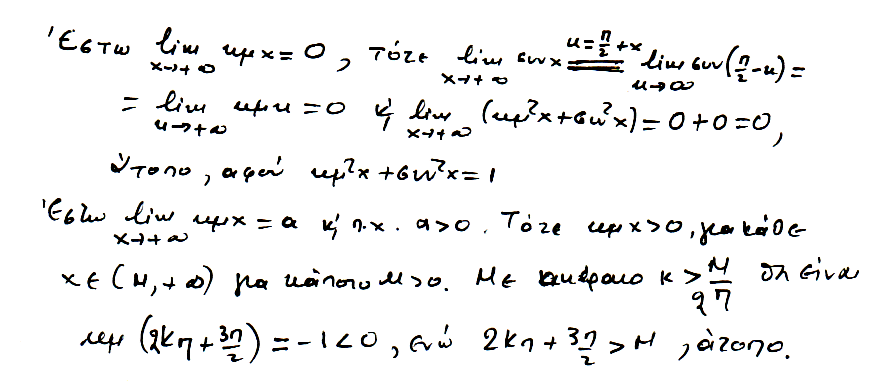 Έστω lim_{x→+∞} ημx = 0, τότε lim_{x→+∞} συνx =^{u=π/2+x} lim_{u→∞} συν(π/2-u) =
= lim_{u→+∞} ημu = 0 κ' lim_{x→+∞} (ημ²x+συν²x) = 0+0=0,
άτοπο, αφού ημ²x+συν²x=1
Έστω lim_{x→+∞} ημx = a κ' π.χ. a>0. Τότε ημx>0, για κάθε
x ∈ (M,+∞) για κάποιο M>0. Με ακέραιο κ > M/2π θα είναι
ημ(2κπ+3π/2) = -1<0, ενώ 2κπ+3π/2 > M, άτοπο.